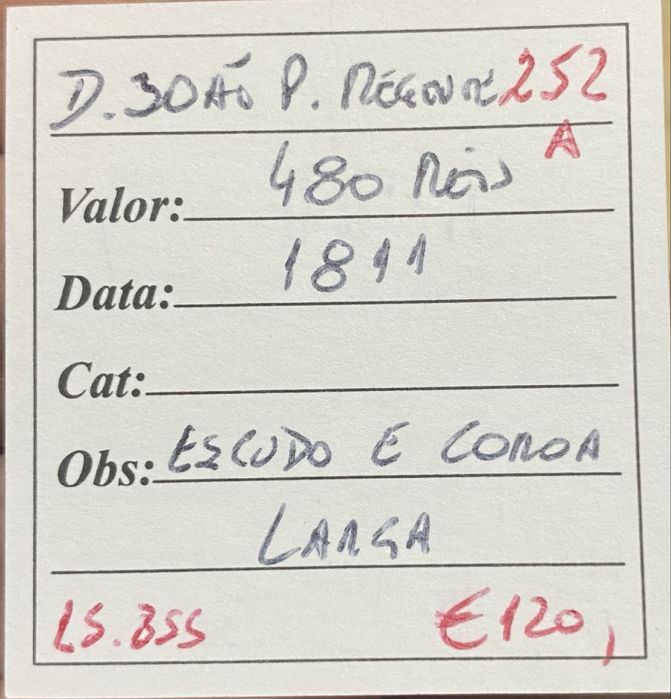 D. JOÃO P. REGENTE 252
A
Valor: 480 REIS
Data: 1811
Cat:
Obs: ESCUDO E COROA
LARGA
€120,